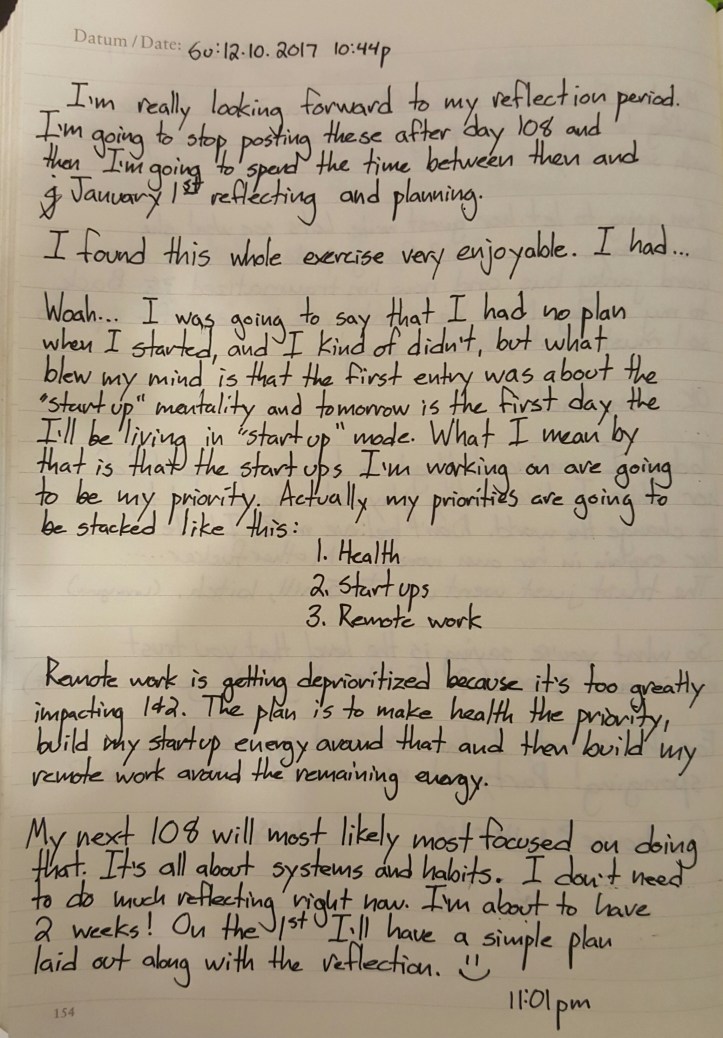 Datum / Date: Su: 12.10.2017 10:44p
I'm really looking forward to my reflection period.
I'm going to stop posting these after day 108 and
then I'm going to spend the time between then and
January 1st reflecting and planning.
I found this whole exercise very enjoyable. I had...
Woah... I was going to say that I had no plan
when I started, and I kind of didn't, but what
blew my mind is that the first entry was about the
"start up" mentality and tomorrow is the first day the
I'll be living in "start up" mode. What I mean by
that is that the start ups I'm working on are going
to be my priority. Actually my priorities are going to
be stacked like this:
1. Health
2. Start ups
3. Remote work
Remote work is getting deprioritized because it's too greatly
impacting 1&2. The plan is to make health the priority,
build my startup energy around that and then build my
remote work around the remaining energy.
My next 108 will most likely most focused on doing
that. It's all about systems and habits. I don't need
to do much reflecting right now. I'm about to have
2 weeks! On the 1st I'll have a simple plan
laid out along with the reflection. :)
11:01pm
154